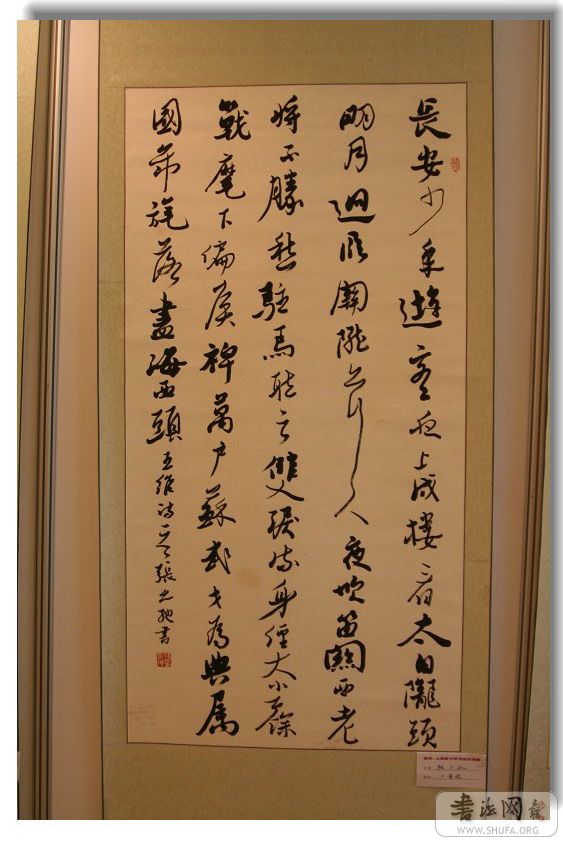 長安少年遊客夜上戍樓看太白隴頭
明月迥臨關隴上行人夜吹笛關西老
將不勝愁駐馬聽之雙淚流身經大小餘
戰麾下偏侯裨萬戶蘇武才為典屬
國節旄落盡海西頭 王維詩一首 張之書
書法网
WWW.SHUFA.ORG